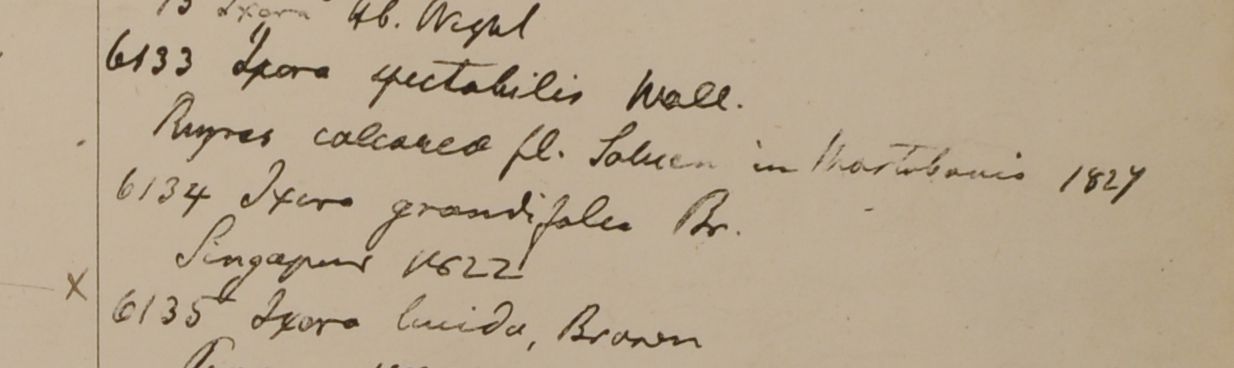 Ixora Hb. Wight
6133 Ixora spectabilis Wall.
Rupes calcarea fl. Saluen in Martabania 1827
6134 Ixora grandifolia Br.
Singapur 1822
6135 Ixora lucida, Brown